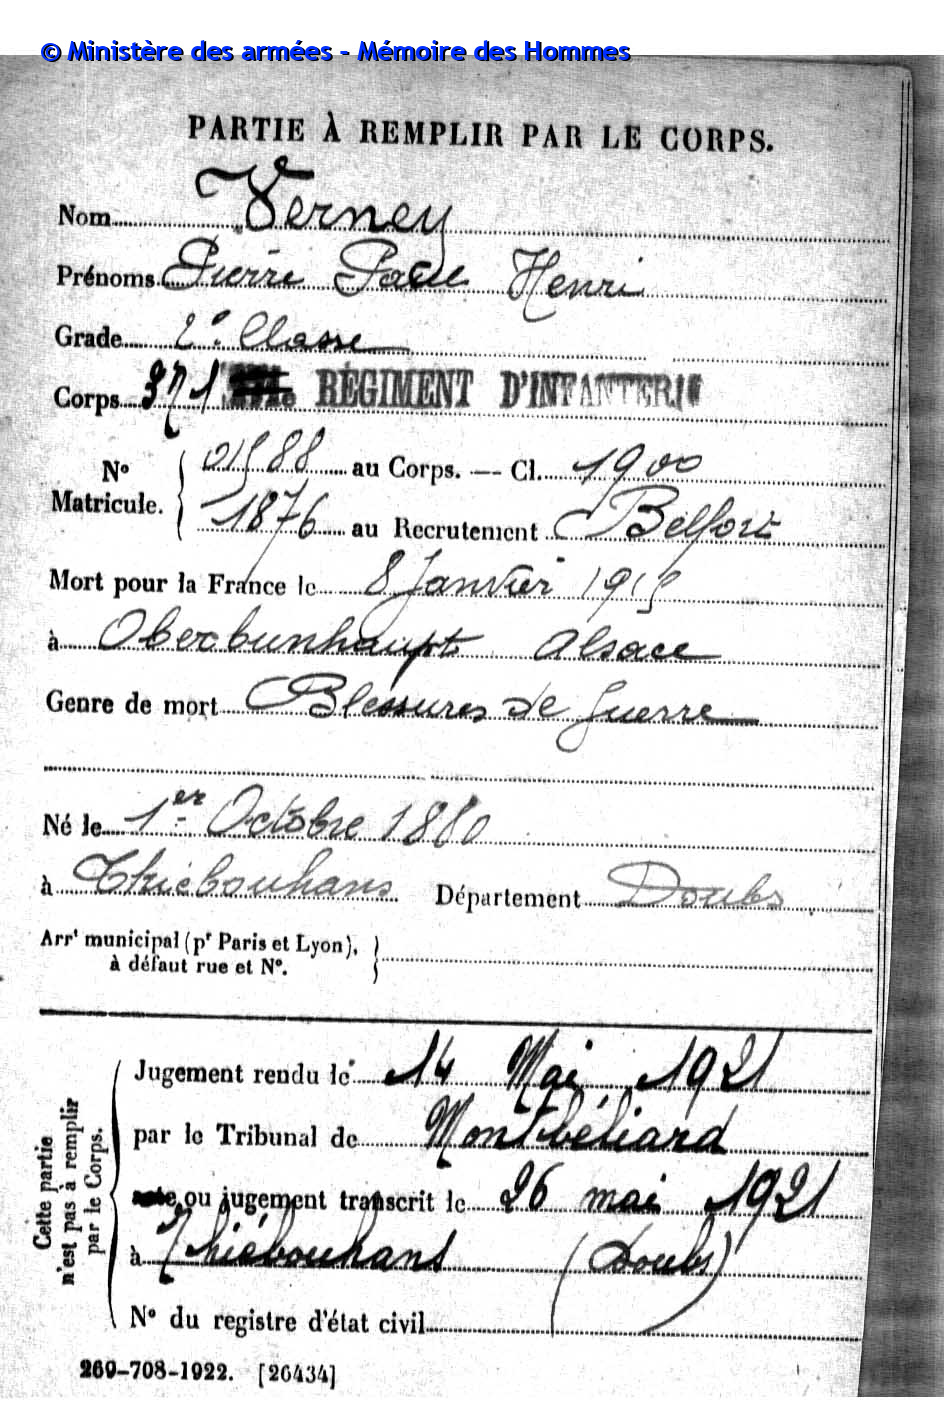 © Ministère des armées - Mémoire des Hommes
PARTIE À REMPLIR PAR LE CORPS.
Nom Verney
Prénoms Pierre Paul Henri
Grade 2e Classe
Corps 371 RÉGIMENT D'INFANTERIE
N° Matricule. 01588 au Corps. — Cl. 1900
1876 au Recrutement Belfort
Mort pour la France le 8 Janvier 1915
à Oberbunhaupt Alsace
Genre de mort Blessures de guerre
Né le 1er Octobre 1880
à Thiébouhans Département Doubs
Arrt municipal (pr Paris et Lyon),
à défaut rue et N°.
Cette partie n'est pas à remplir par le Corps.
Jugement rendu le 14 Mai 1921
par le Tribunal de Montbéliard
acte ou jugement transcrit le 26 mai 1921
à Thiébouhans (Doubs)
N° du registre d'état civil
269-708-1922. [26434]